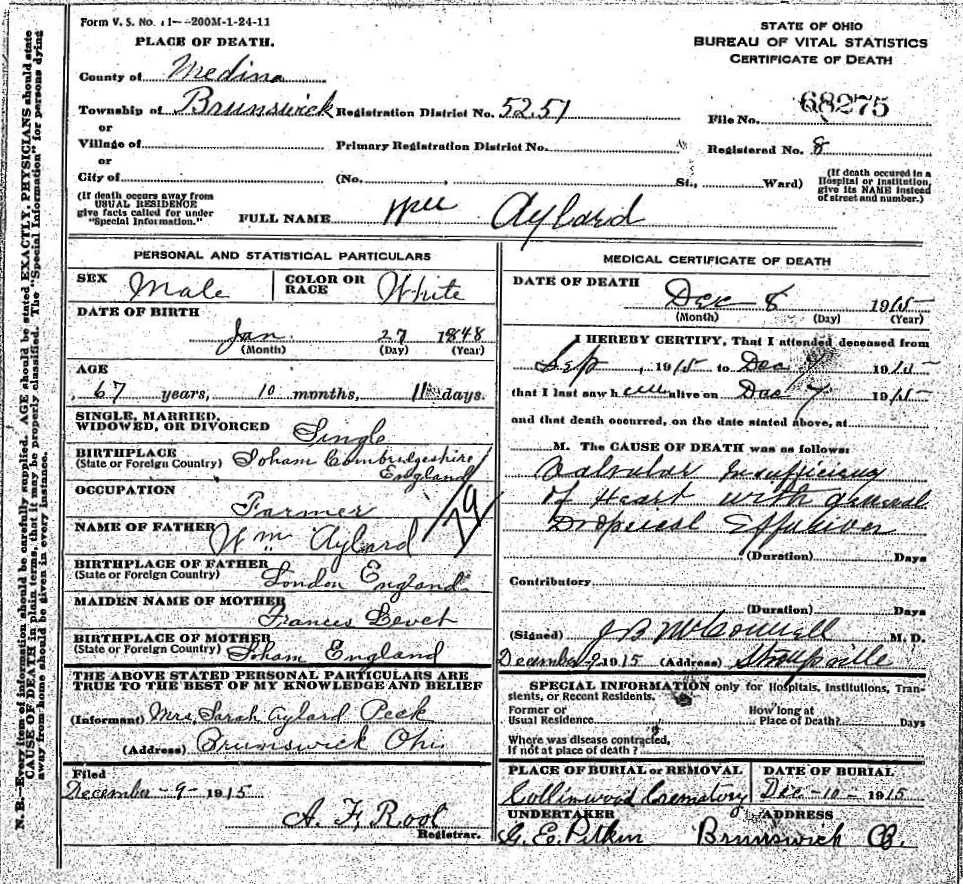 Form V. S. No. 11--200M-1-24-11
PLACE OF DEATH.
County of Medina
Township of Brunswick Registration District No. 5251
or
Village of Primary Registration District No.
or
City of (No. , St., Ward)
(If death occurs away from USUAL RESIDENCE give facts called for under "Special Information.")
STATE OF OHIO
BUREAU OF VITAL STATISTICS
CERTIFICATE OF DEATH
File No. 68275
Registered No. 8
(If death occured in a Hospital or Institution, give its NAME instead of street and number.)
FULL NAME Wm Aylard
PERSONAL AND STATISTICAL PARTICULARS
SEX Male COLOR OR RACE White
DATE OF BIRTH
Jan 27 1848
(Month) (Day) (Year)
AGE
67 years, 10 months, 11 days.
SINGLE, MARRIED, WIDOWED, OR DIVORCED Single
BIRTHPLACE
(State or Foreign Country) Soham Cambridgeshire England
OCCUPATION
Farmer
79
NAME OF FATHER Wm Aylard
BIRTHPLACE OF FATHER
(State or Foreign Country) London England
MAIDEN NAME OF MOTHER
Frances Levet
BIRTHPLACE OF MOTHER
(State or Foreign Country) Soham England
THE ABOVE STATED PERSONAL PARTICULARS ARE
TRUE TO THE BEST OF MY KNOWLEDGE AND BELIEF
(Informant) Mrs. Sarah Aylard Peck
(Address) Brunswick Ohio
Filed
December-9-1915
A. F. Root
Registrar.
MEDICAL CERTIFICATE OF DEATH
DATE OF DEATH Dec 8 1915
(Month) (Day) (Year)
I HEREBY CERTIFY, That I attended deceased from
Sep, 1915 to Dec 1915
that I last saw him alive on Dec 7 1915
and that death occurred, on the date stated above, at
M. The CAUSE OF DEATH was as follows:
Valvular Insufficiency
of Heart with general
Dropsical Effusion
(Duration) Days
Contributory
(Duration) Days
(Signed) J B McConnell M. D.
December-9-1915 (Address) Strongsville
SPECIAL INFORMATION only for Hospitals, Institutions, Tran-
sients, or Recent Residents,
Former or Usual Residence
How long at Place of Death? Days
Where was disease contracted,
If not at place of death?
PLACE OF BURIAL or REMOVAL DATE OF BURIAL
Collinwood Crematory Dec-10-1915
UNDERTAKER ADDRESS
G. E. Pitkin Brunswick O.
N. B.—Every item of information should be carefully supplied. AGE should be stated EXACTLY. PHYSICIANS should state
CAUSE OF DEATH in plain terms, that it may be properly classified. The "Special Information" for persons dying
away from home should be given in every instance.